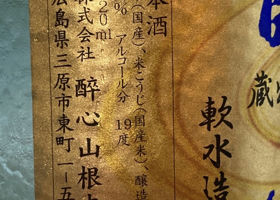 蔵
軟水造
本酒
(国産)、米こうじ(国産米)、醸造
% アルコール分 19度
720ml
株式会社 醉心山根
広島県三原市東町一ー五